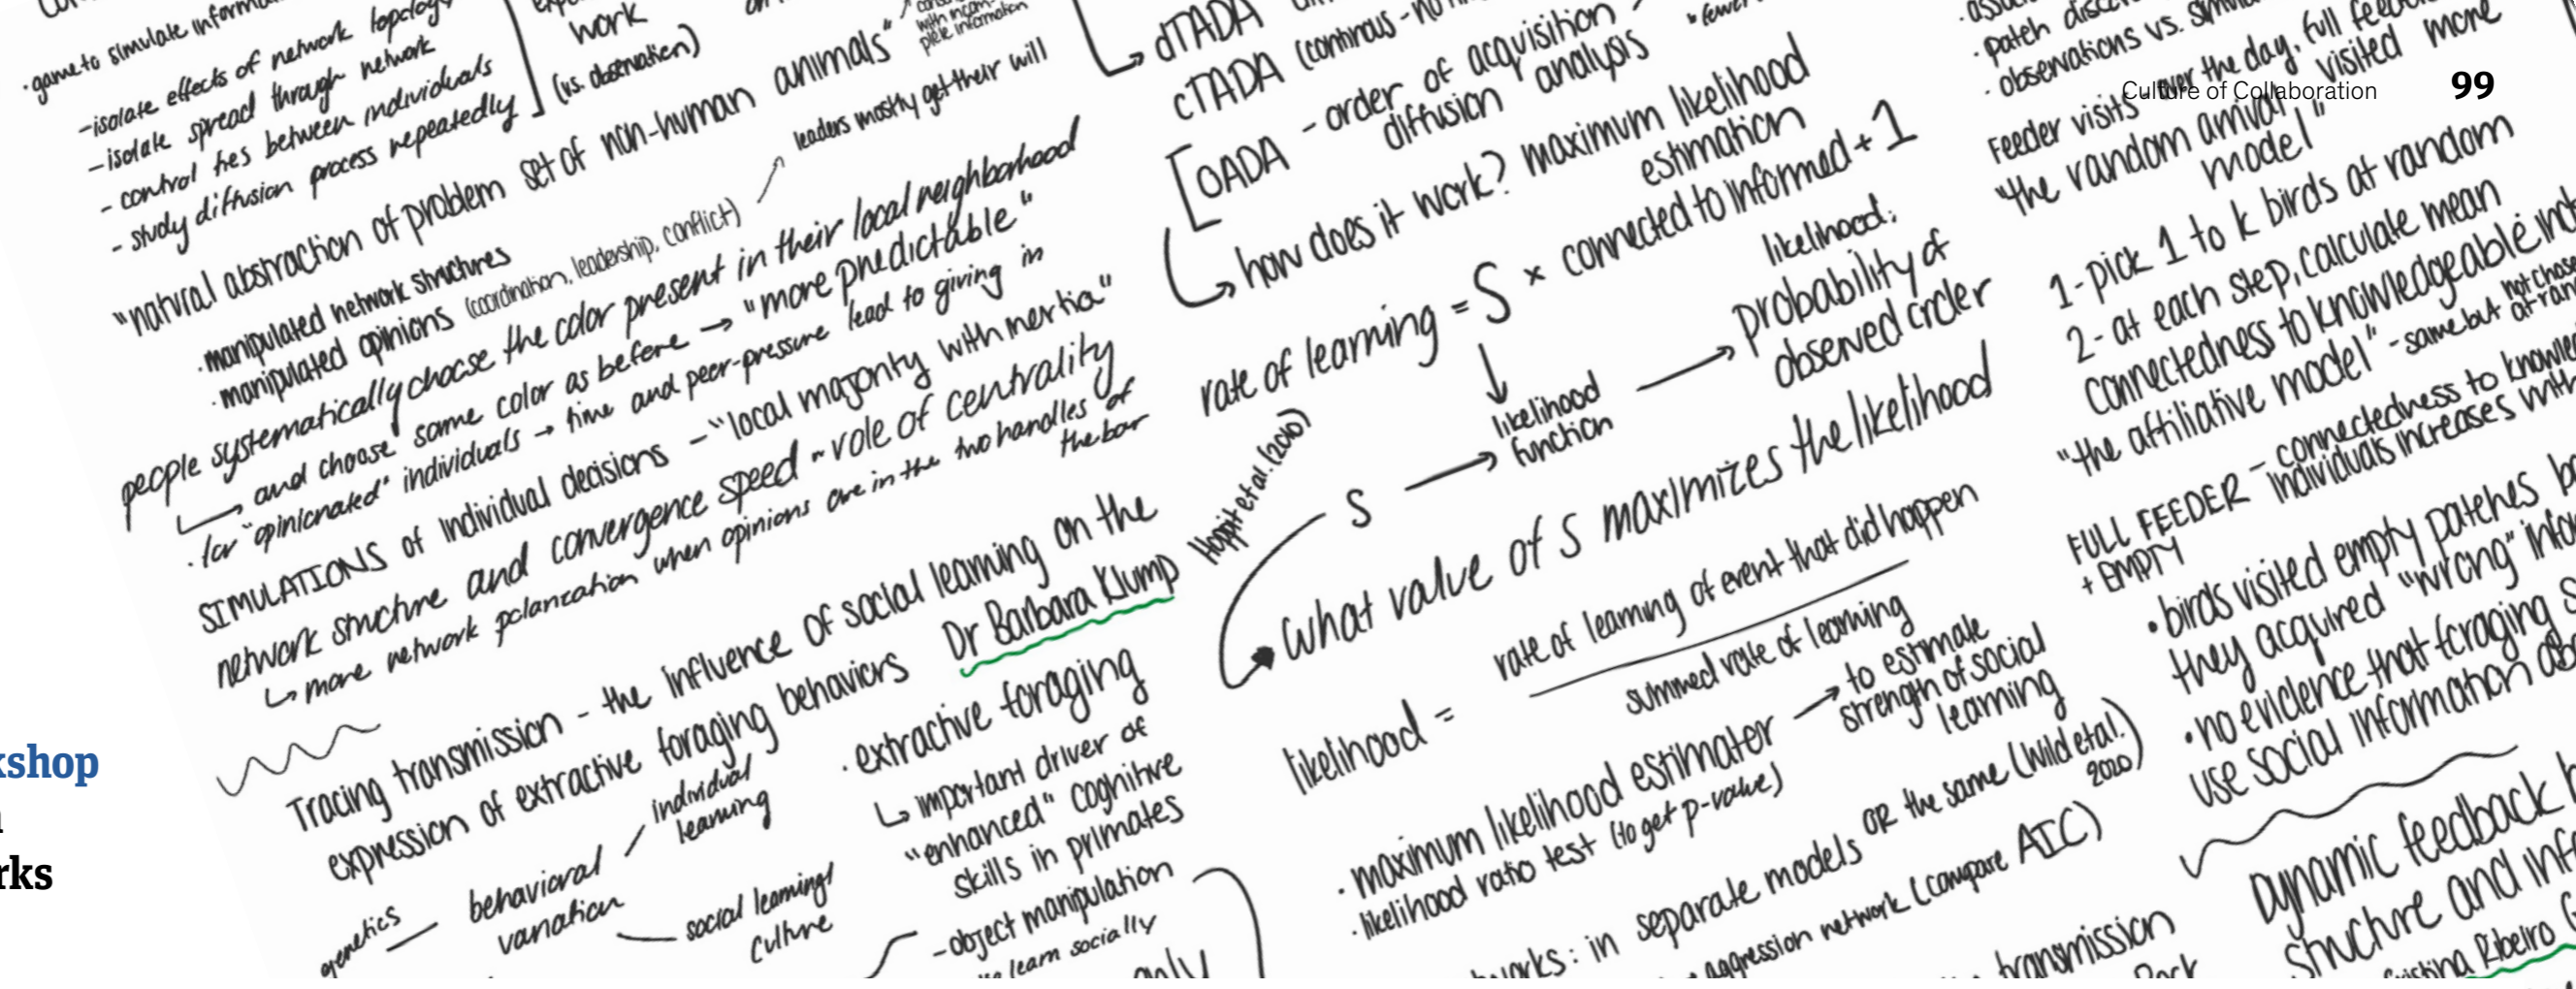 Culture of Collaboration 99
kshop
rks
· game to simulate
-isolate effects of network topology
-isolate spread through network
- control ties between individuals
- study diffusion process repeatedly
work
(vs. observation)
"natural abstraction of problem set of non-human animals"
with incom-
plete information
· manipulated network structures
· manipulated opinions (coordination, leadership, conflict)
leaders mostly get their will
people systematically choose the color present in their local neighborhood
and choose same color as before → "more predictable"
· for "opinionated" individuals → time and peer-pressure lead to giving in
SIMULATIONS of individual decisions - "local majority with inertia"
network structure and convergence speed ~ role of centrality
↳ more network polarization when opinions are in the two handles of
the bar
Tracing transmission - the influence of social learning on the
expression of extractive foraging behaviors Dr Barbara Klump
genetics
behavioral
variation
individual
learning
social learning/
culture
· extractive foraging
↳ important driver of
"enhanced" cognitive
skills in primates
- object manipulation
learn socially
only
dTADA
cTADA
[OADA - order of acquisition
diffusion analysis
how does it work? maximum likelihood
estimation
rate of learning = S × connected to informed + 1
likelihood:
probability of
observed order
likelihood
function
Hoppit et al. (2010)
S
What value of S maximizes the likelihood
likelihood =
rate of learning of event that did happen
summed rate of learning
· maximum likelihood estimater → to estimate
strength of social
learning
· likelihood ratio test (to get p-value)
works: in separate models OR the same (Wild et al.
2020)
aggression network (compare AIC)
transmission
· patch
· observations vs.
Feeder visits over the day, full
visited more
"the random arrival
model"
1- pick 1 to k birds at random
2- at each step, calculate mean
connectedness to knowledgeable
"the affiliative model" - same but
not chose
FULL FEEDER - connectedness to
+ EMPTY
individuals increases
· birds visited empty patches
they acquired "wrong"
· no evidence that foraging
use social information
Dynamic feedback
structure and
Ribeiro